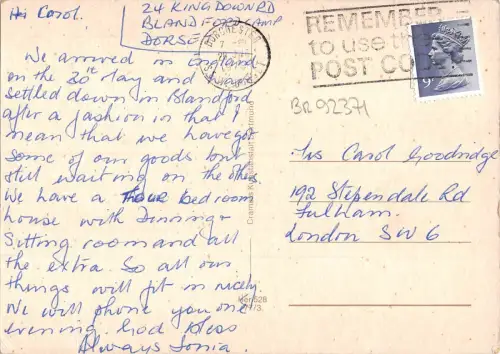 Hi Carol.
24 KINGDOWN RD
BLANDFORD CAMP
DORSET
We arrived in England
on the 30th May and
settled down in Blandford
after a fashion in that I
mean that we have got
some of our goods but
still waiting on the others
We have a four bedroom
house with Dinning +
Sitting room and all
the extra. So all our
things will fit in nicely
We will phone you one
evening. God Bless
Always Sonia.
DORCHESTER
REMEMBER
to use the
POST CO
9
BR 92371
Carol Goodridge
192 Stependale Rd
Fulham.
London SW6